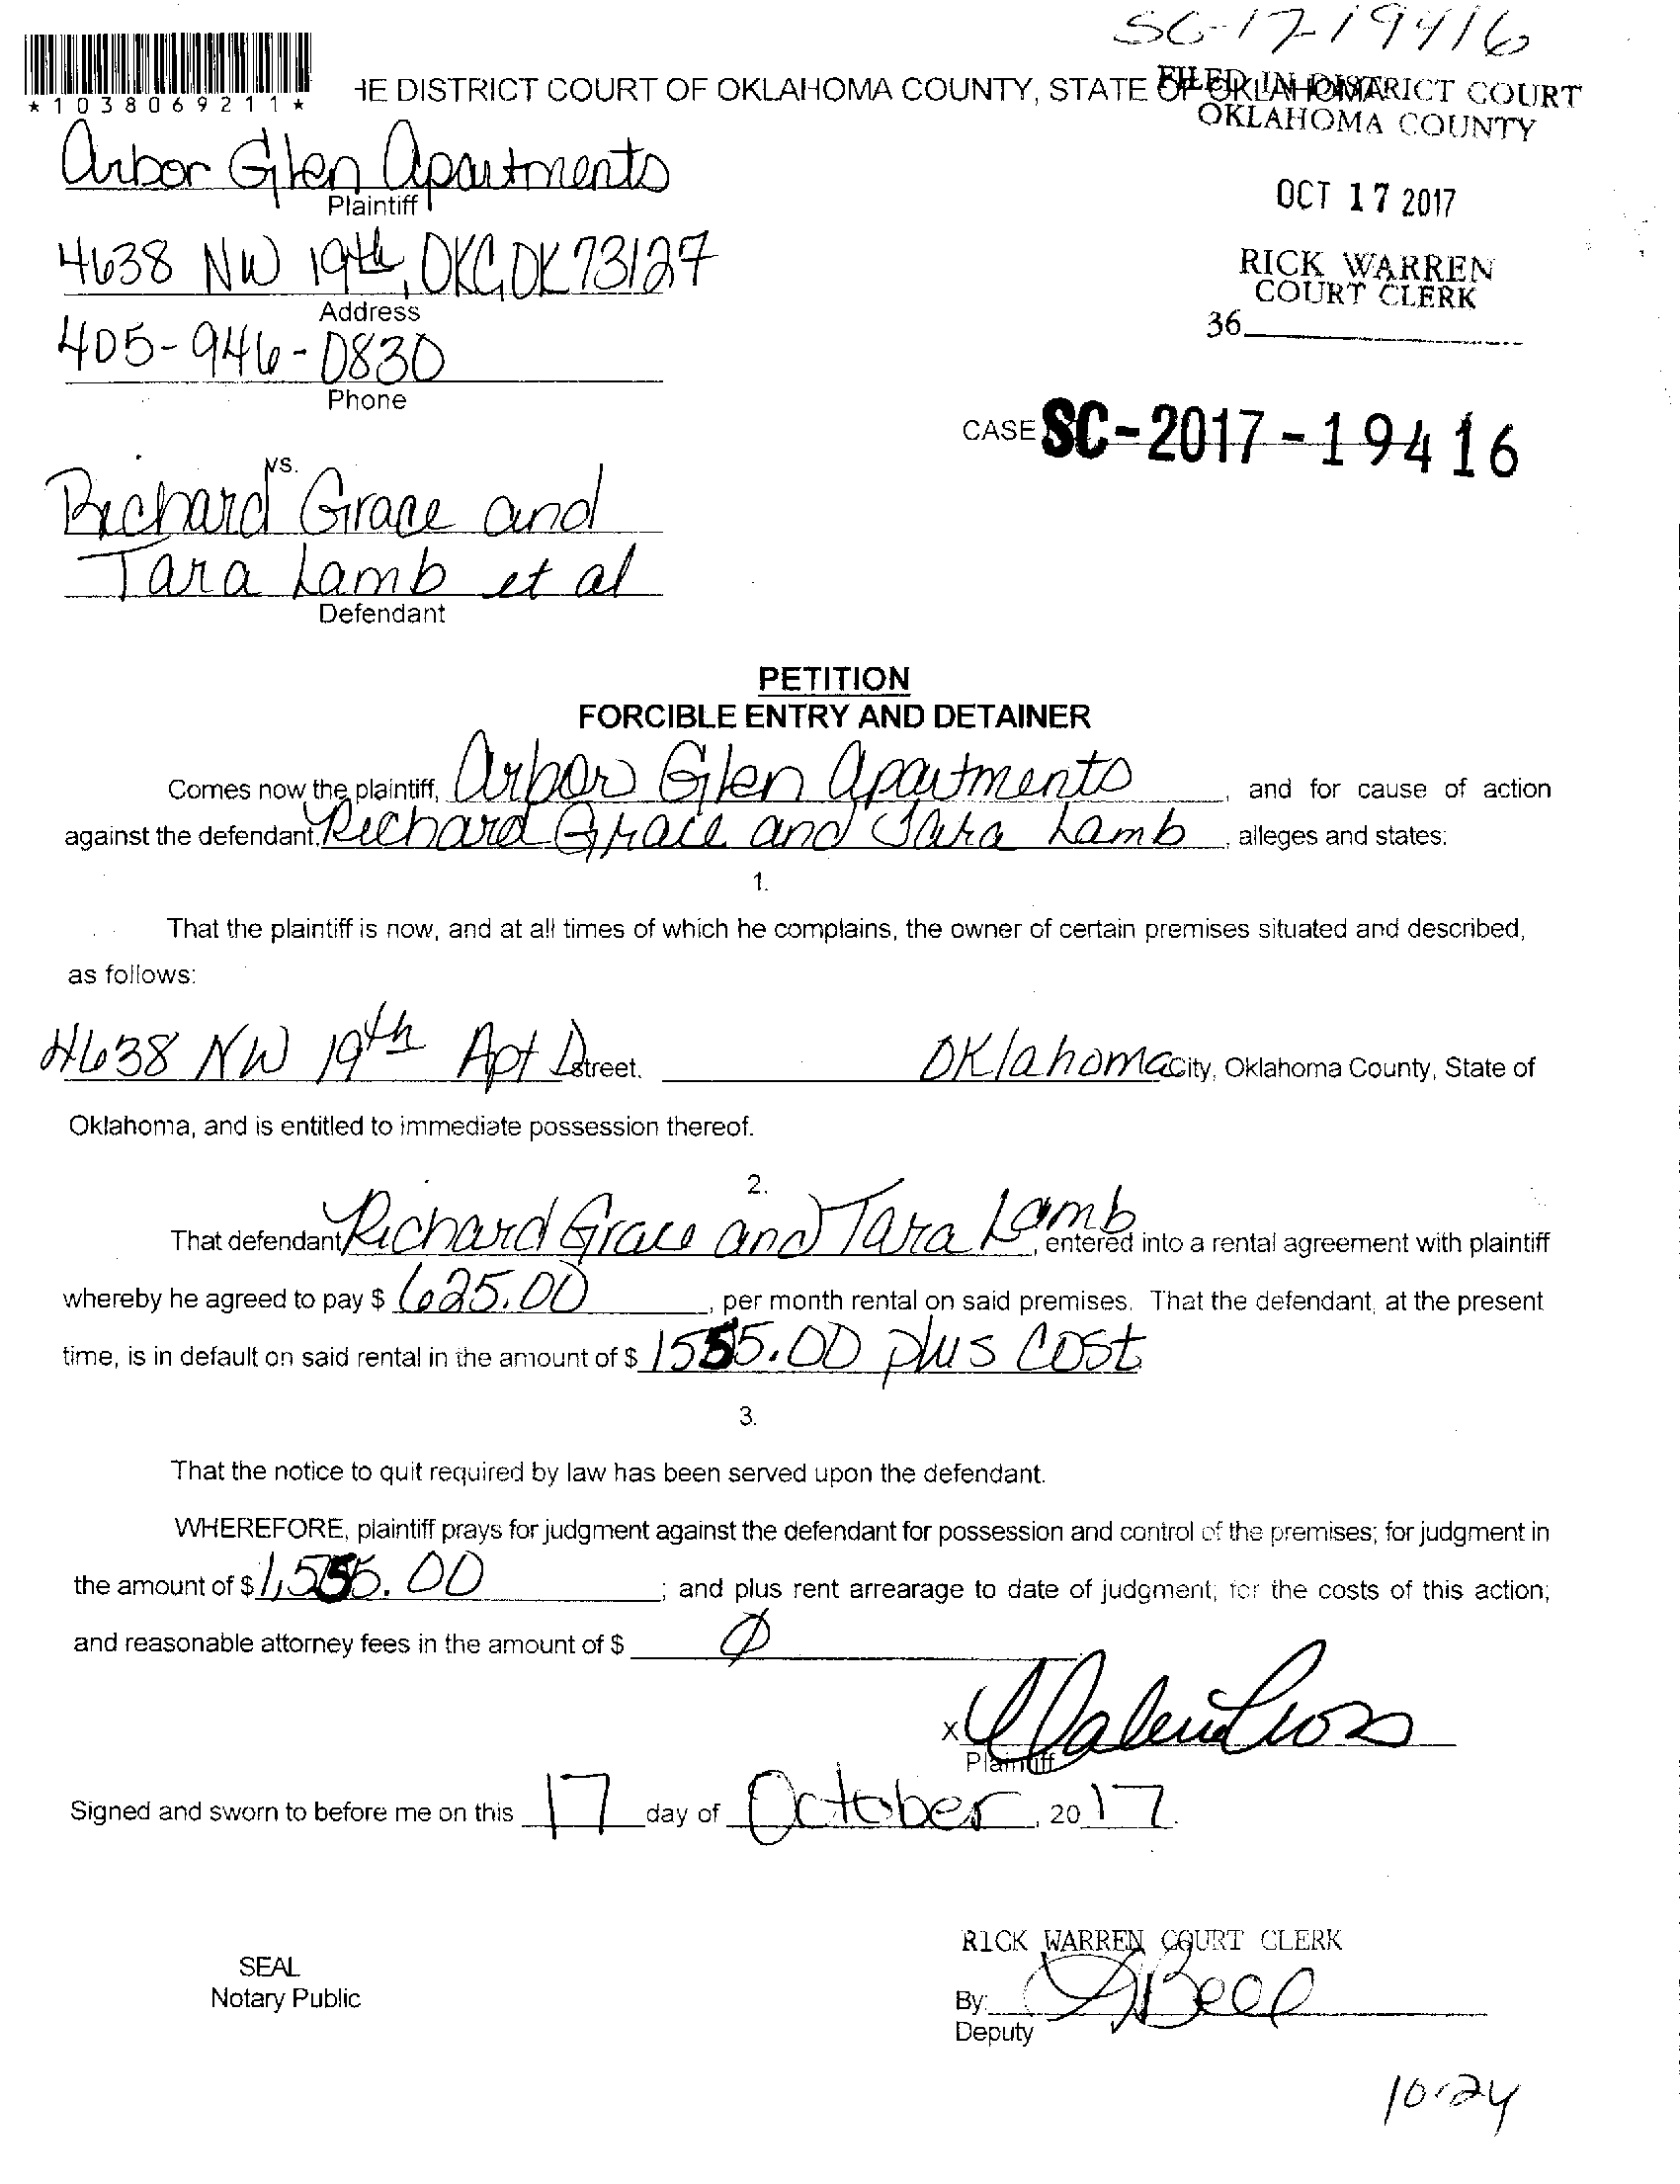 SC-17-19416
*1038069211*
HE DISTRICT COURT OF OKLAHOMA COUNTY, STATE OF OKLAHOMA
FILED IN DISTRICT COURT
OKLAHOMA COUNTY
Arbor Glen Apartments
Plaintiff
OCT 17 2017
4638 NW 19th, OKC, OK 73127
Address
RICK WARREN
COURT CLERK
36
405-946-0830
Phone
CASE SC-2017-19416
vs.
Richard Grace and
Tara Lamb et al
Defendant
PETITION
FORCIBLE ENTRY AND DETAINER
Comes now the plaintiff, Arbor Glen Apartments, and for cause of action
against the defendant, Richard Grace and Tara Lamb, alleges and states:
1.
That the plaintiff is now, and at all times of which he complains, the owner of certain premises situated and described,
as follows:
4638 NW 19th Apt D street. Oklahoma City, Oklahoma County, State of
Oklahoma, and is entitled to immediate possession thereof.
2.
That defendant Richard Grace and Tara Lamb, entered into a rental agreement with plaintiff
whereby he agreed to pay $ 625.00, per month rental on said premises. That the defendant, at the present
time, is in default on said rental in the amount of $ 1555.00 plus cost
3.
That the notice to quit required by law has been served upon the defendant.
WHEREFORE, plaintiff prays for judgment against the defendant for possession and control of the premises; for judgment in
the amount of $ 1,555.00; and plus rent arrearage to date of judgment; for the costs of this action;
and reasonable attorney fees in the amount of $ Ø
X
Plaintiff
Signed and sworn to before me on this 17 day of October, 2017.
RICK WARREN COURT CLERK
SEAL
Notary Public
By:
Deputy
10-24